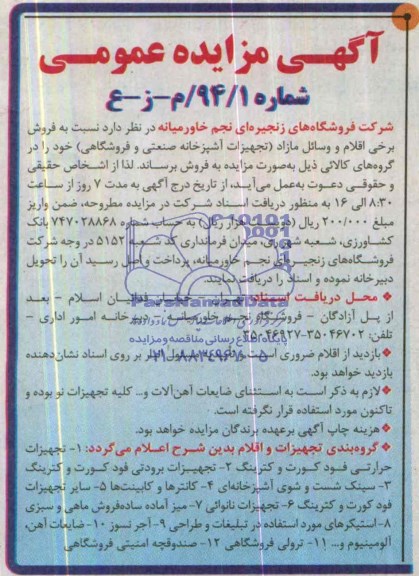 آگهـی مزایده عمومـی
شماره ۹۴/۱/م-ز-ع
شرکت فروشگاه‌های زنجیره‌ای نجم خاورمیانه در نظر دارد نسبت به فروش
برخی اقلام و وسائل مازاد (تجهیزات آشپزخانه صنعتی و فروشگاهی) خود را در
گروه‌های کالائی ذیل به‌صورت مزایده به فروش برساند. لذا از اشخاص حقیقی
و حقوقی دعوت به‌عمل می‌آید، از تاریخ درج آگهی به مدت ۷ روز از ساعت
۸:۳۰ الی ۱۶ به منظور دریافت اسناد شرکت در مزایده مطروحه، ضمن واریز
مبلغ ۲۰۰/۰۰۰ ریال (دویست هزار ریال) به حساب شماره ۷۴۷۰۲۸۸۶۸ بانک
کشاورزی، شعبه شهرری، میدان فرمانداری کد شعبه ۵۱۵۲ در وجه شرکت
فروشگاه‌های زنجیره‌ای نجم خاورمیانه، پرداخت و اصل رسید آن را تحویل
دبیرخانه نموده و اسناد را دریافت نمایند.
❖ محل دریافت اسناد: فدائیان اسلام - بعد
از پل آزادگان - فروشگاه نجم خاورمیانه - دبیرخانه امور اداری -
تلفن: ۳۵۰۴۶۷۰۲-۳۵۰۴۶۹۲۷
❖ بازدید از اقلام ضروری است بر روی اسناد نشان‌دهنده
بازدید خواهد بود.
❖ لازم به ذکر است به استثنای ضایعات آهن‌آلات و... کلیه تجهیزات نو بوده و
تاکنون مورد استفاده قرار نگرفته است.
❖ هزینه چاپ آگهی برعهده برندگان مزایده خواهد بود.
❖ گروه‌بندی تجهیزات و اقلام بدین شرح اعلام می‌گردد: ۱- تجهیزات
حرارتی فـود کورت و کترینگ ۲- تجهیـزات برودتی فود کورت و کترینگ
۳- سینک شست و شوی آشپزخانه‌ای ۴- کانترها و کابینت‌ها ۵- سایر تجهیزات
فود کورت و کترینگ ۶- تجهیزات نانوائی ۷- میز آماده ساده‌فروش ماهی و سبزی
۸- استیکرهای مورد استفاده در تبلیغات و طراحی ۹- آجر نسوز ۱۰- ضایعات آهن،
آلومینیوم و... ۱۱- ترولی فروشگاهی ۱۲- صندوقچه امنیتی فروشگاهی
ParsNamadData
پایگاه اطلاع رسانی مناقصه و مزایده
۰۲۱-۸۸۳۴۹۶۷۰-۵